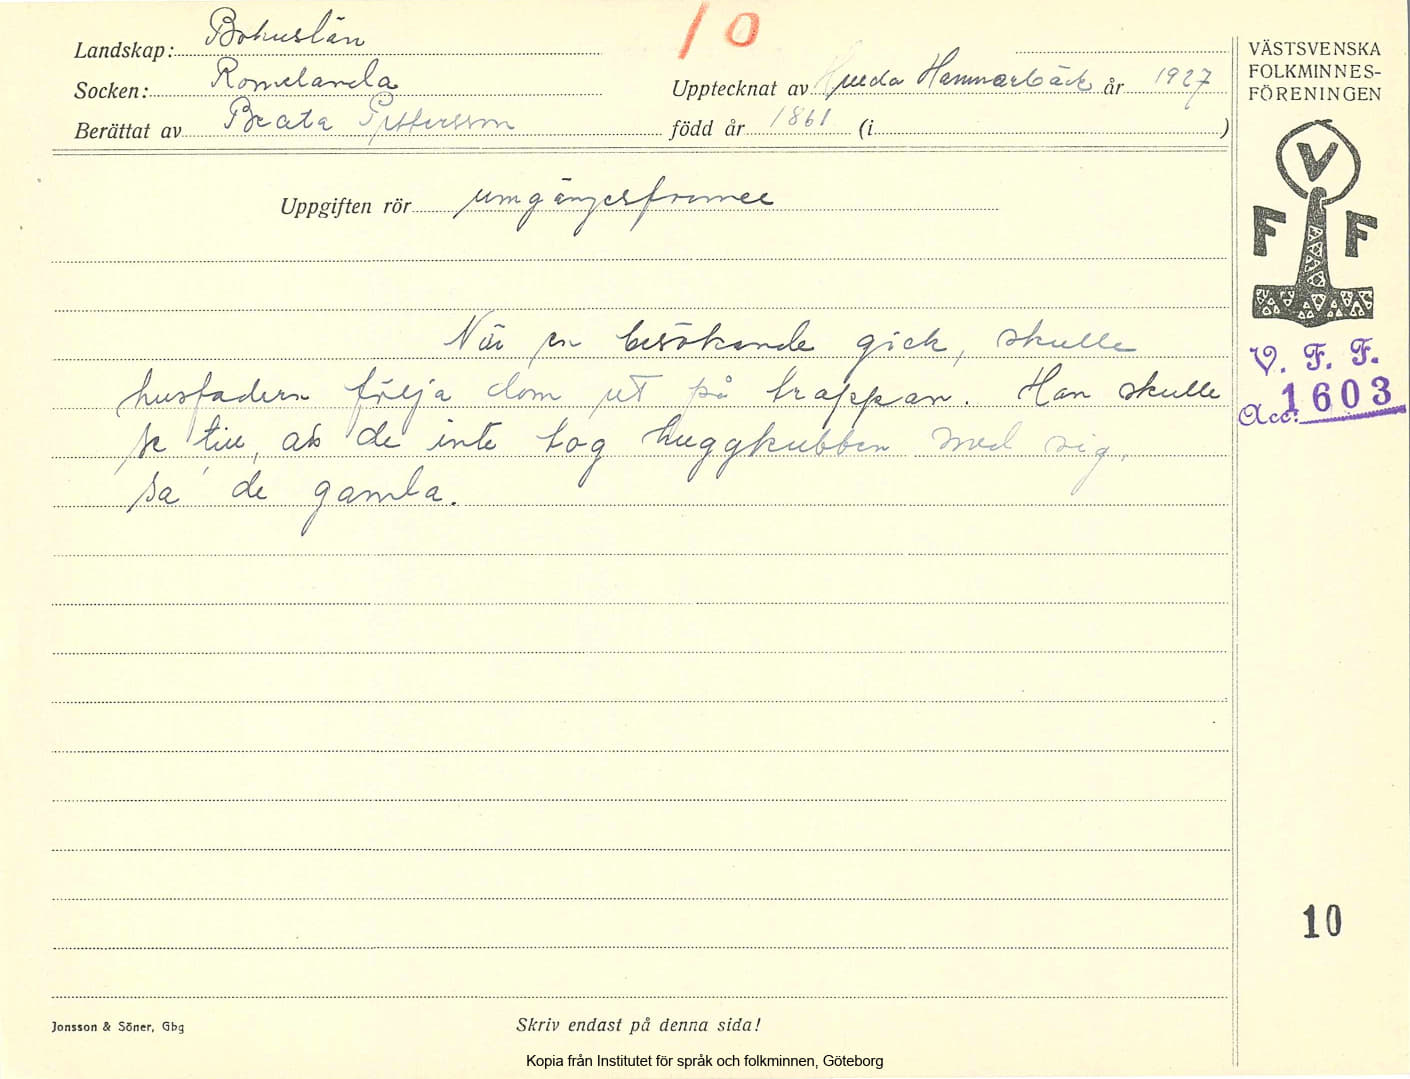 10
Landskap: Bohuslän
Socken: Romelanda
Upptecknat av Hulda Hammarbäck år 1927
Berättat av Beata Pettersson född år 1861 (i )
Uppgiften rör umgängesformer
När en besökande gick, skulle
husfadern följa dom ut på trappan. Han skulle
se till, att de inte tog huggkubben med sig,
sa' de gamla.
VÄSTSVENSKA
FOLKMINNES-
FÖRENINGEN
V
F F
V. F. F.
Acc: 1603
10
Jonsson & Söner, Gbg
Skriv endast på denna sida!
Kopia från Institutet för språk och folkminnen, Göteborg